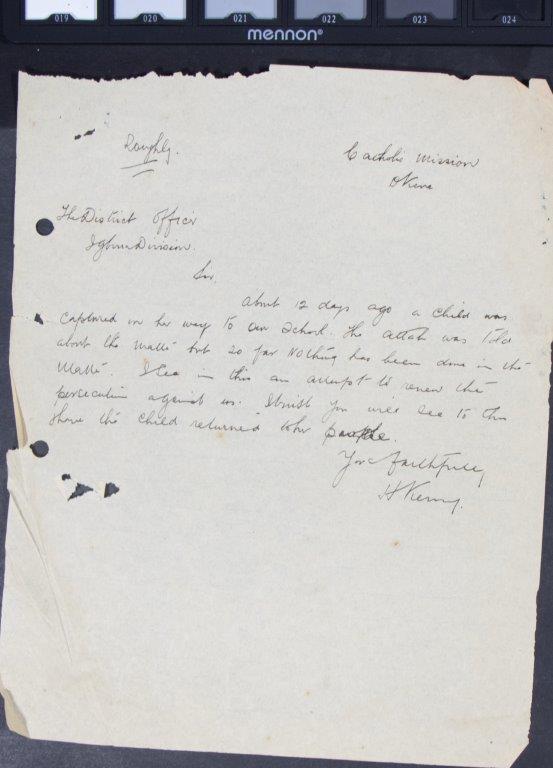 019 020 021 022 023 024
mennon®
Roughly.
Catholic Mission
Okene
The District Officer
Igbirra Division.
Sir,
About 12 days ago a child was
captured on her way to our School. The attah was told
about the matter but so far nothing has been done in the
matter. I see in this an attempt to renew the
persecution against us. I trust you will see to this
& have the child returned to her people.
Yours faithfully
H Kenny.